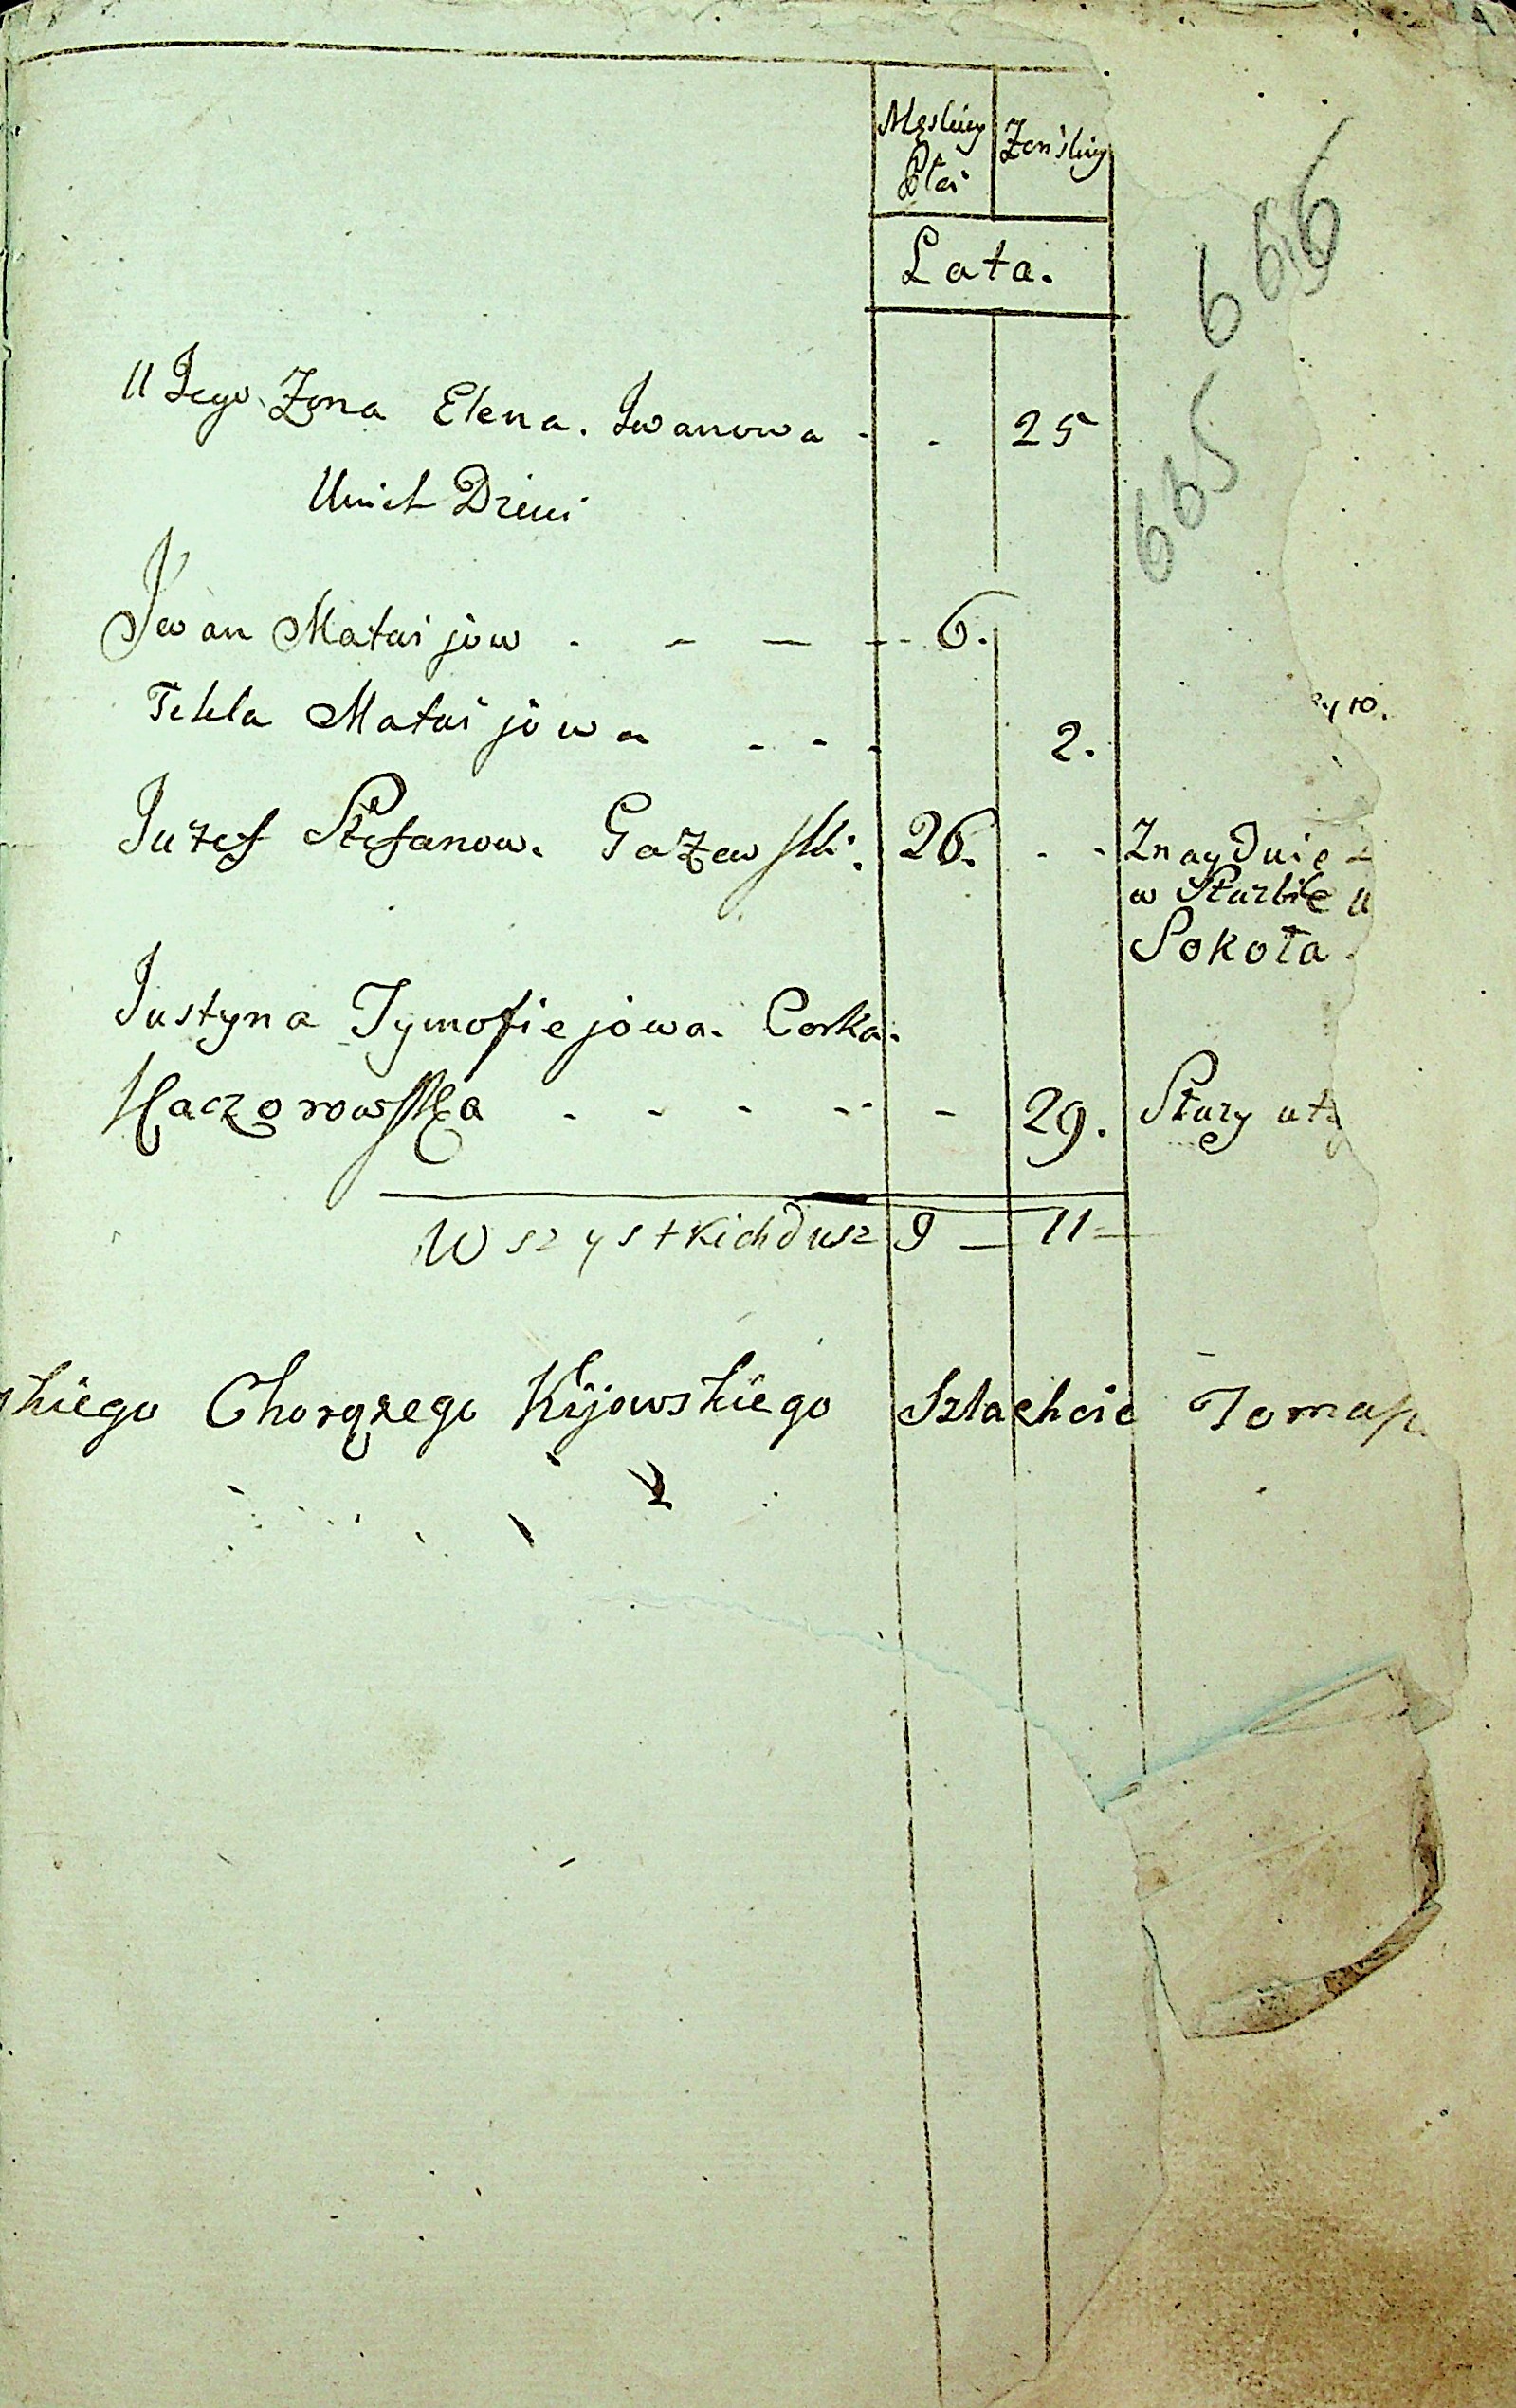 Męskiey Żeńskiey
Płci
Lata.
666
665
U Jego Zona Elena. Iwanowa - - 25
U nich Dzieci
Iwan Matwijow - - - - 6.
Tekla Matwijowa - - - 2.
Juzef Stefanow. Gazewski. 26. - - Znayduie
w Służbie u
Sokoła
Justyna Tymofiejowa. Corka.
Kaczorowska - - - - - 29. Służy
Wszystkich dusz 9 — 11 —
skiego Chorążego Kijowskiego Szlachcic Tomasz